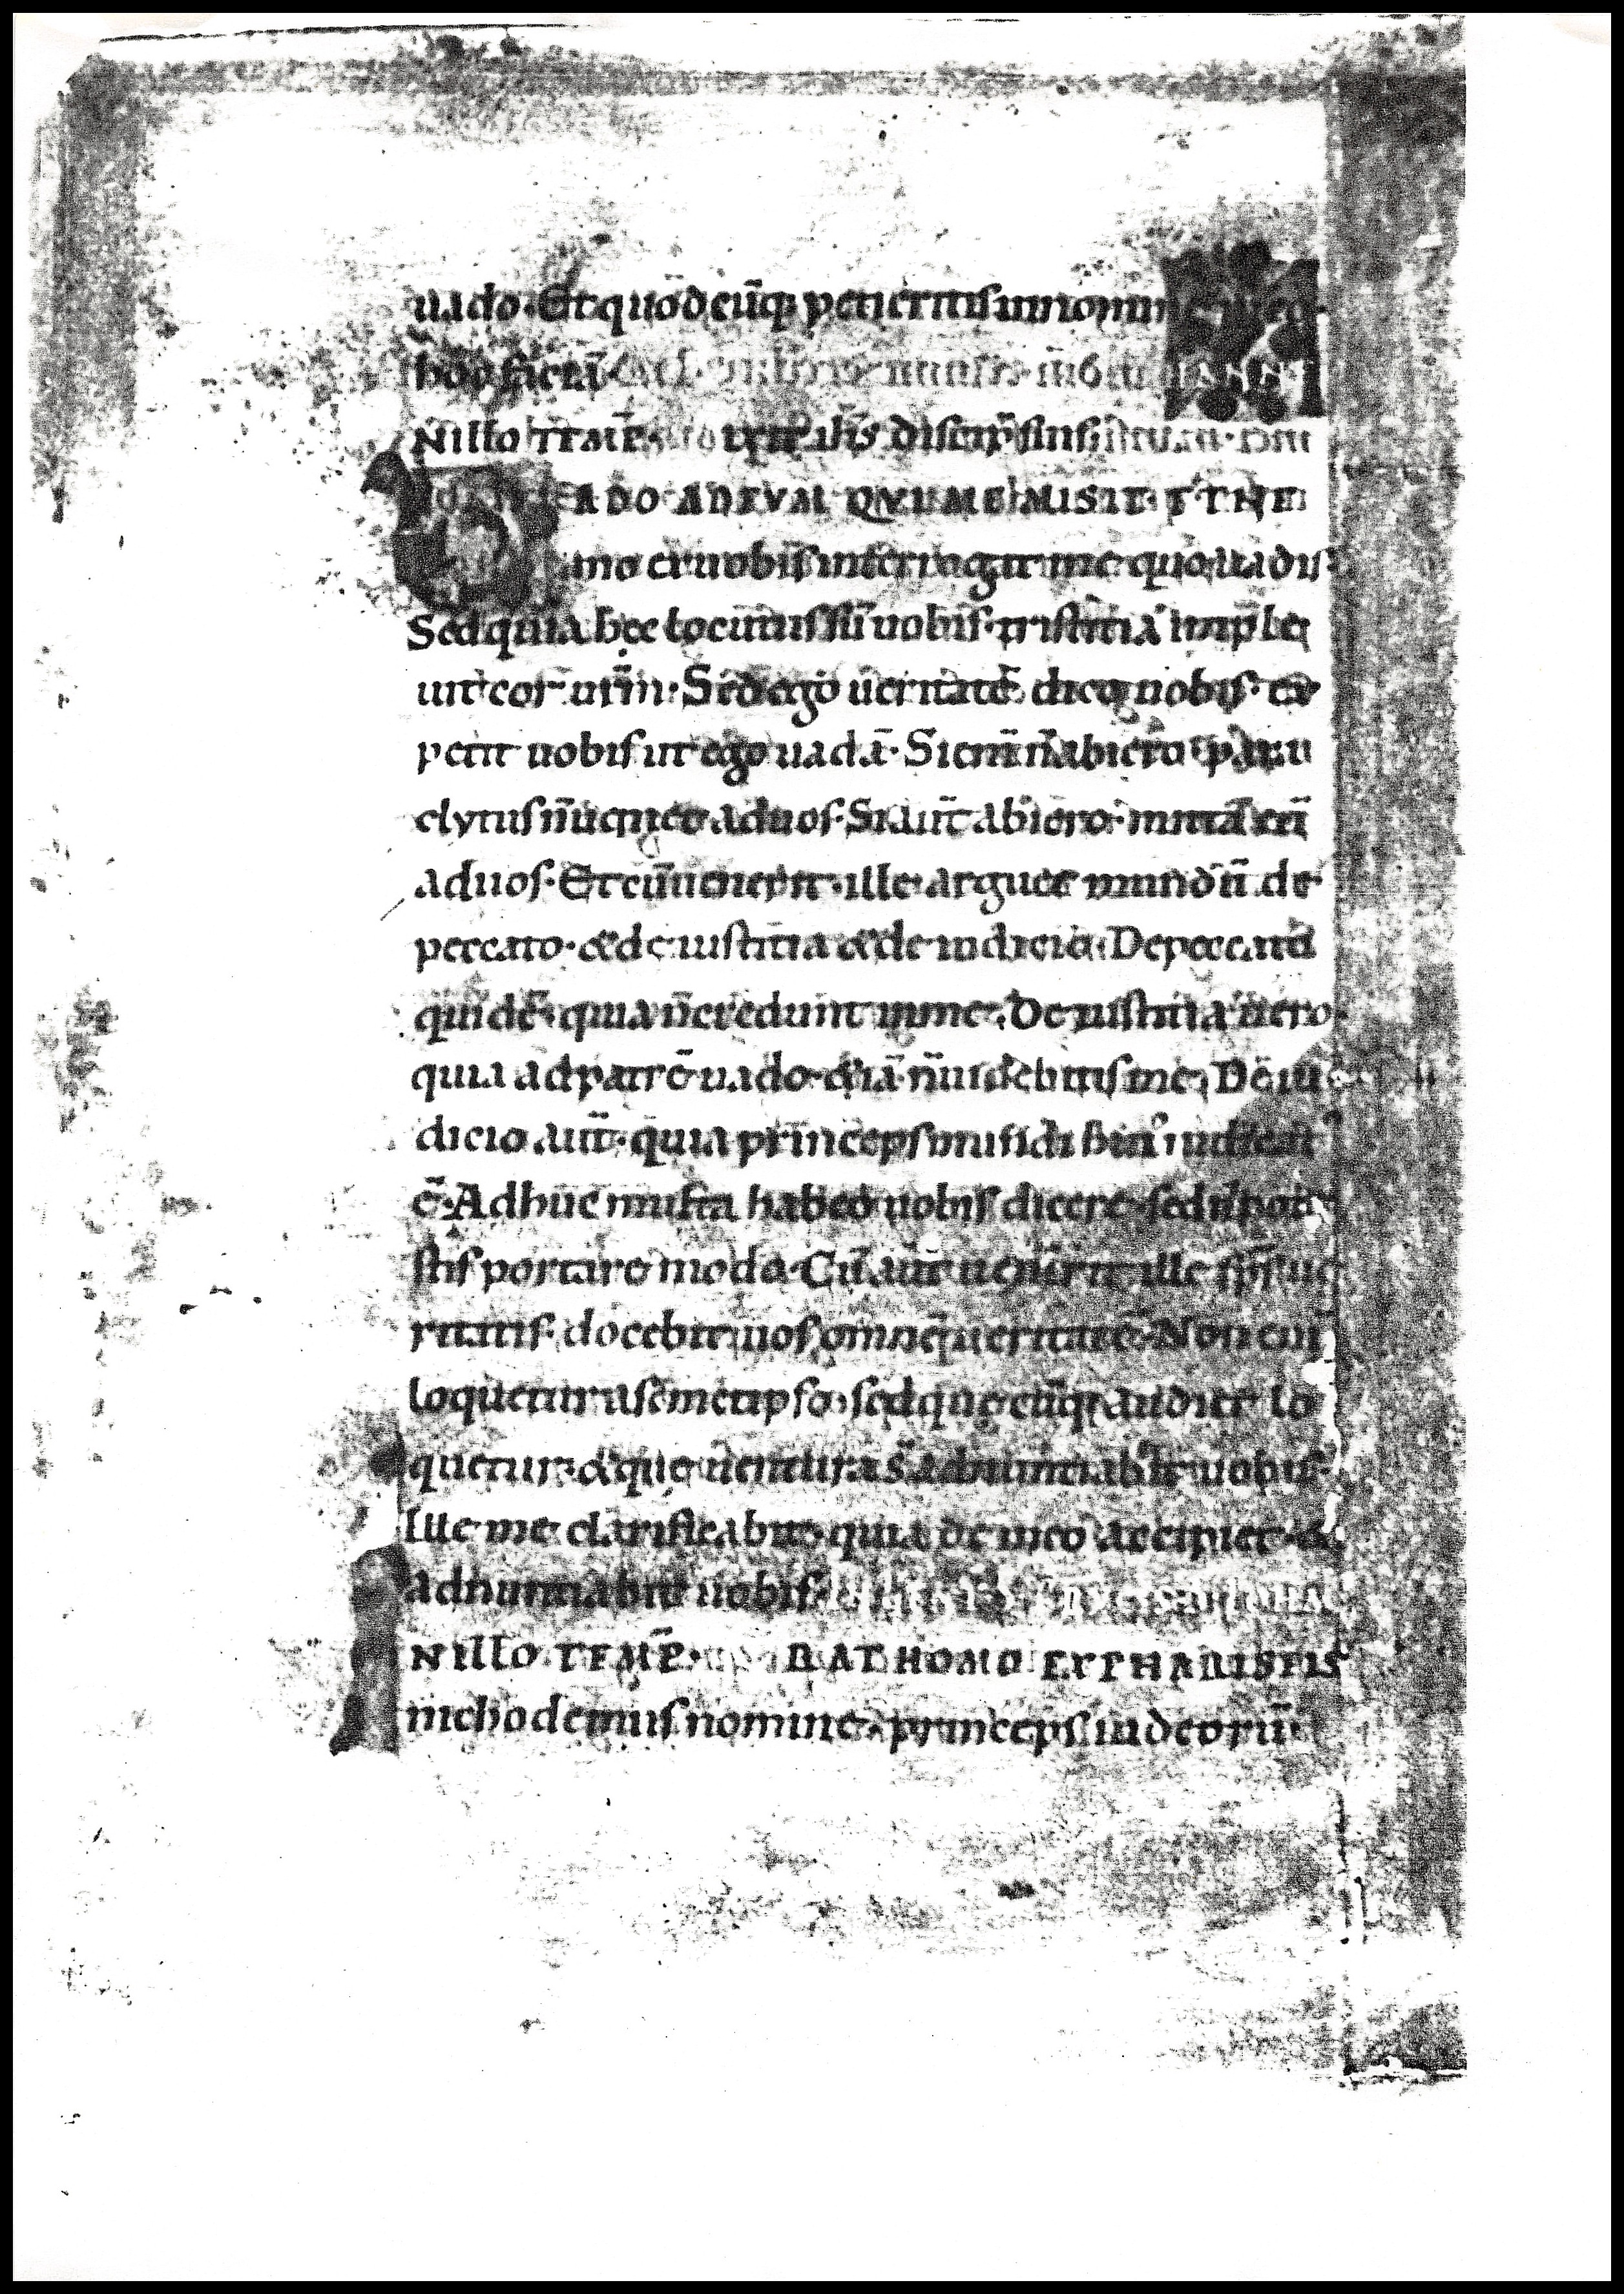 uado. Et quodcūq; petieritis in nomin
hoc faciā.
N illo tempr̄. dixit ih̄s discip̄lis suis
VADO AD EVM QVI ME MISIT. ET NE
mo ex uobis interrogat me quo uadis.
Sed quia hęc locutus sū uobis. tristitia imple
uit cor ur̄m. Sed ego ueritatē dico uobis. ex
petit uobis ut ego uadā. Si enī n̄ abiero para
clytus n̄ ueniet ad uos. Si aut̄ abiero. mittā eū
ad uos. Et cū uenerit. ille arguet mundū de
peccato. & de iustitia & de iudicio. De peccato
quidē. quia n̄ credunt in me. De iustitia uero
quia ad patrē uado. & iā n̄ uidebitis me. De iu
dicio aut̄. quia princeps mundi hui' iudicat'
ē. Adhuc multa habeo uobis dicere. sed n̄ pote
stis portare modo. Cū aut̄ uenerit ille sp̄s ue
ritatis. docebit uos omnē ueritatē. Non eni
loquetur a semetipso. sed quęcūq; audiet lo
quetur. & quę uentura s̄ adnuntiabit uobis.
Ille me clarificabit. quia de meo accipiet. &
adnuntiabit uobis.
NILLO TEMP̄. ERAT HOMO EX PHARISEIS
nichodemus nomine. princeps iudeorū.